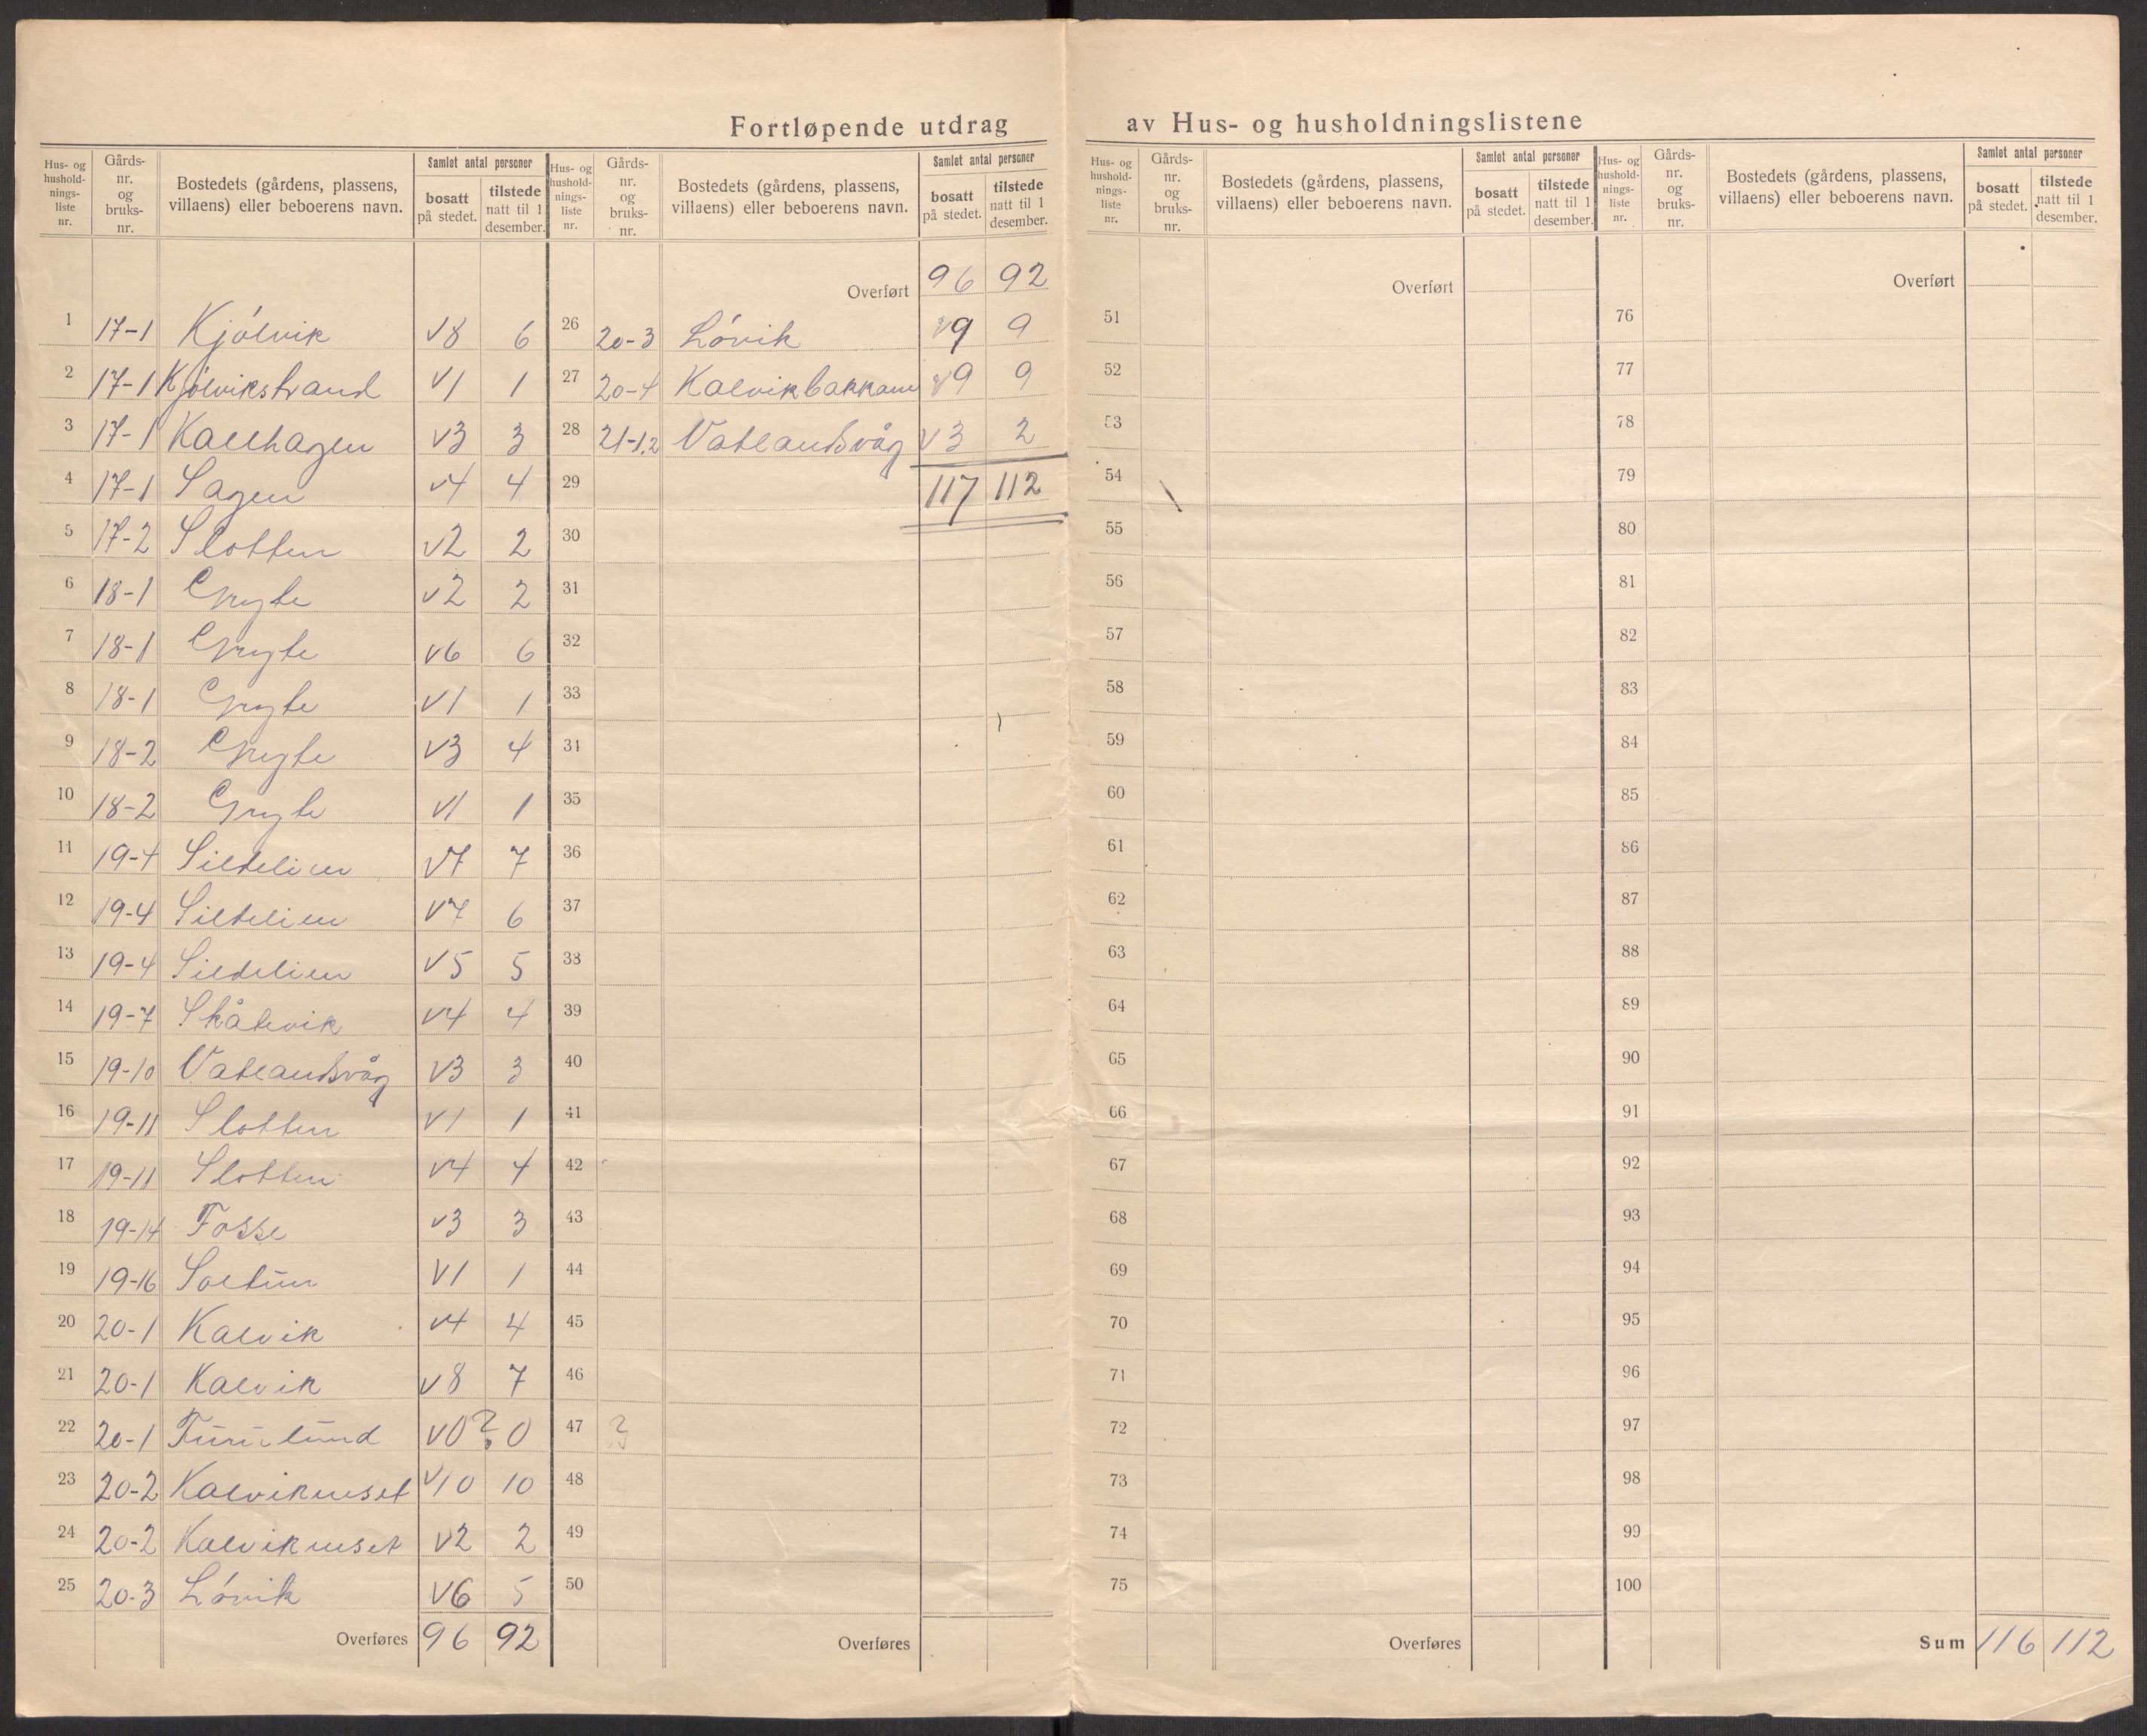 Fortløpende utdrag av Hus- og husholdningslistene
Hus- og hushold-nings-liste nr. Gårds-nr. og bruks-nr. Bostedets (gårdens, plassens, villaens) eller beboerens navn. Samlet antal personer bosatt på stedet. tilstede natt til 1 desember.
1 17-1 Kjólvik v8 6
2 17-1 Kjólvikstrand v1 1
3 17-1 Kallhagen v3 3
4 17-1 Sagen v4 4
5 17-2 Slotten v2 2
6 18-1 Gryte v2 2
7 18-1 Gryte v6 6
8 18-1 Gryte v1 1
9 18-2 Gryte v3 4
10 18-2 Gryte v1 1
11 19-4 Sildelien v7 7
12 19-4 Sildelien v7 6
13 19-4 Sildelien v5 5
14 19-7 Skålevik v4 4
15 19-10 Vatlandsvåg v3 3
16 19-11 Slotten v1 1
17 19-11 Slotten v4 4
18 19-14 Fosse v3 3
19 19-16 Soltūn v1 1
20 20-1 Kalvik v4 4
21 20-1 Kalvik v8 7
22 20-1 Fūrūlūnd v0? 0
23 20-2 Kalviknuset v10 10
24 20-2 Kalviknuset v2 2
25 20-3 Lóvik v6 5
Overføres 96 92
Hus- og hushold-nings-liste nr. Gårds-nr. og bruks-nr. Bostedets (gårdens, plassens, villaens) eller beboerens navn. Samlet antal personer bosatt på stedet. tilstede natt til 1 desember.
Overført 96 92
26 20-3 Lóvik v9 9
27 20-4 Kalvikbakkane v9 9
28 21-1.2 Vatlandsvåg v3 2
29 117 112
30
31
32
33
34
35
36
37
38
39
40
41
42
43
44
45
46
47 ?
48
49
50
Overføres
Hus- og hushold-nings-liste nr. Gårds-nr. og bruks-nr. Bostedets (gårdens, plassens, villaens) eller beboerens navn. Samlet antal personer bosatt på stedet. tilstede natt til 1 desember.
Overført
51
52
53
54
55
56
57
58
59
60
61
62
63
64
65
66
67
68
69
70
71
72
73
74
75
Overføres
Hus- og hushold-nings-liste nr. Gårds-nr. og bruks-nr. Bostedets (gårdens, plassens, villaens) eller beboerens navn. Samlet antal personer bosatt på stedet. tilstede natt til 1 desember.
Overført
76
77
78
79
80
81
82
83
84
85
86
87
88
89
90
91
92
93
94
95
96
97
98
99
100
Sum 116 112